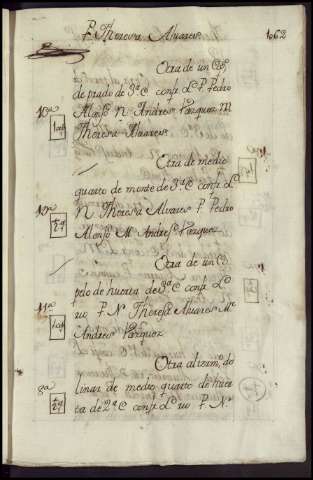 P. Theresa Alvares 1062
Otra de un Cº
de prado de 3ª C confª L. P. Pedro
10ª Alonso N Andres Vazquez M
Theresa Alvares
Otra de medio
quarto de monte de 3ª C confª L
10ª N Theresa Alvares P Pedro
Alonso M Andres Vazquez
Otra de un C
pelo de huerta de 3ª C confª L
11ª P. N Theresa Alvares M
Andres Vazquez
Otra al term. do
8ª linar de medio quarto de huer
ta de 2ª C confª L P N